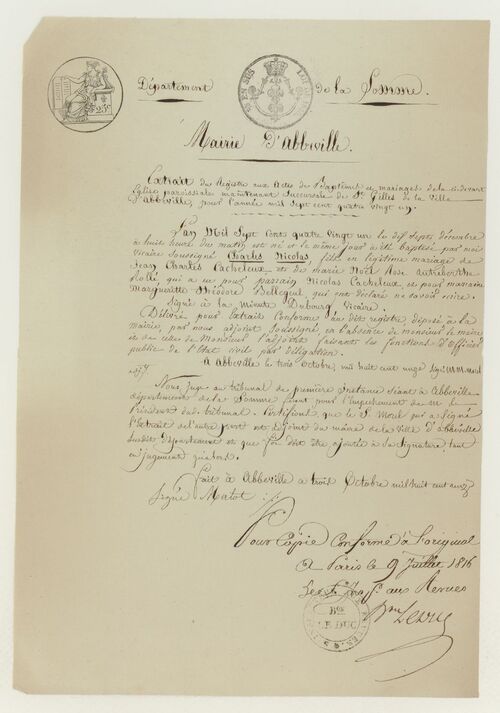 Département de la Somme.
Mairie D'Abbeville.
Extrait du Registre aux Actes de Baptêmes et mariages de la ci devant
Eglise paroissiale maintenant Succursale de St Gilles de la Ville
D'abbeville, pour l'année mil sept cent quatre vingt un.
L'an Mil Sept Cent quatre vingt un le dix sept décembre
à huit heure du matin est né et le même jour a été baptisé par moi
Vicaire Soussigné Charles Nicolas, fils en légitime mariage de
Jean Charles Cacheleux et de marie Noël Rose
qui a eu pour parrain Nicolas Cacheleux et pour marraine
Marguerite Théodore Bellegueul qui ont déclaré ne savoir écrire.
Signé à la minute Dubourg Vicaire.
Délivré pour Extrait Conforme au dit registre, déposé à la
mairie, par nous adjoint Soussigné, en l'absence de monsieur le maire
et de celle de Monsieur l'adjoint faisant les fonctions d'officier
public de l'Etat civil par délégation.
A Abbeville le trois Octobre, mil huit cent onze Signé
Nous, Juge au tribunal de première Instance séant à Abbeville
département de la Somme pour l'Empêchement de M. le
Président dud. tribunal. Certifions que le S. qui a Signé
l'Extrait de l'autre part est adjoint du maire de la Ville d'abbeville
Susdit département et que foi doit être ajoutée à sa Signature, tant
en jugement que hors.
Fait à Abbeville ce trois Octobre mil huit cent onze
Signé Matot
Pour Copie Conforme à l'original
a Paris le 9 Juillet 1816
Bon
LE DUC